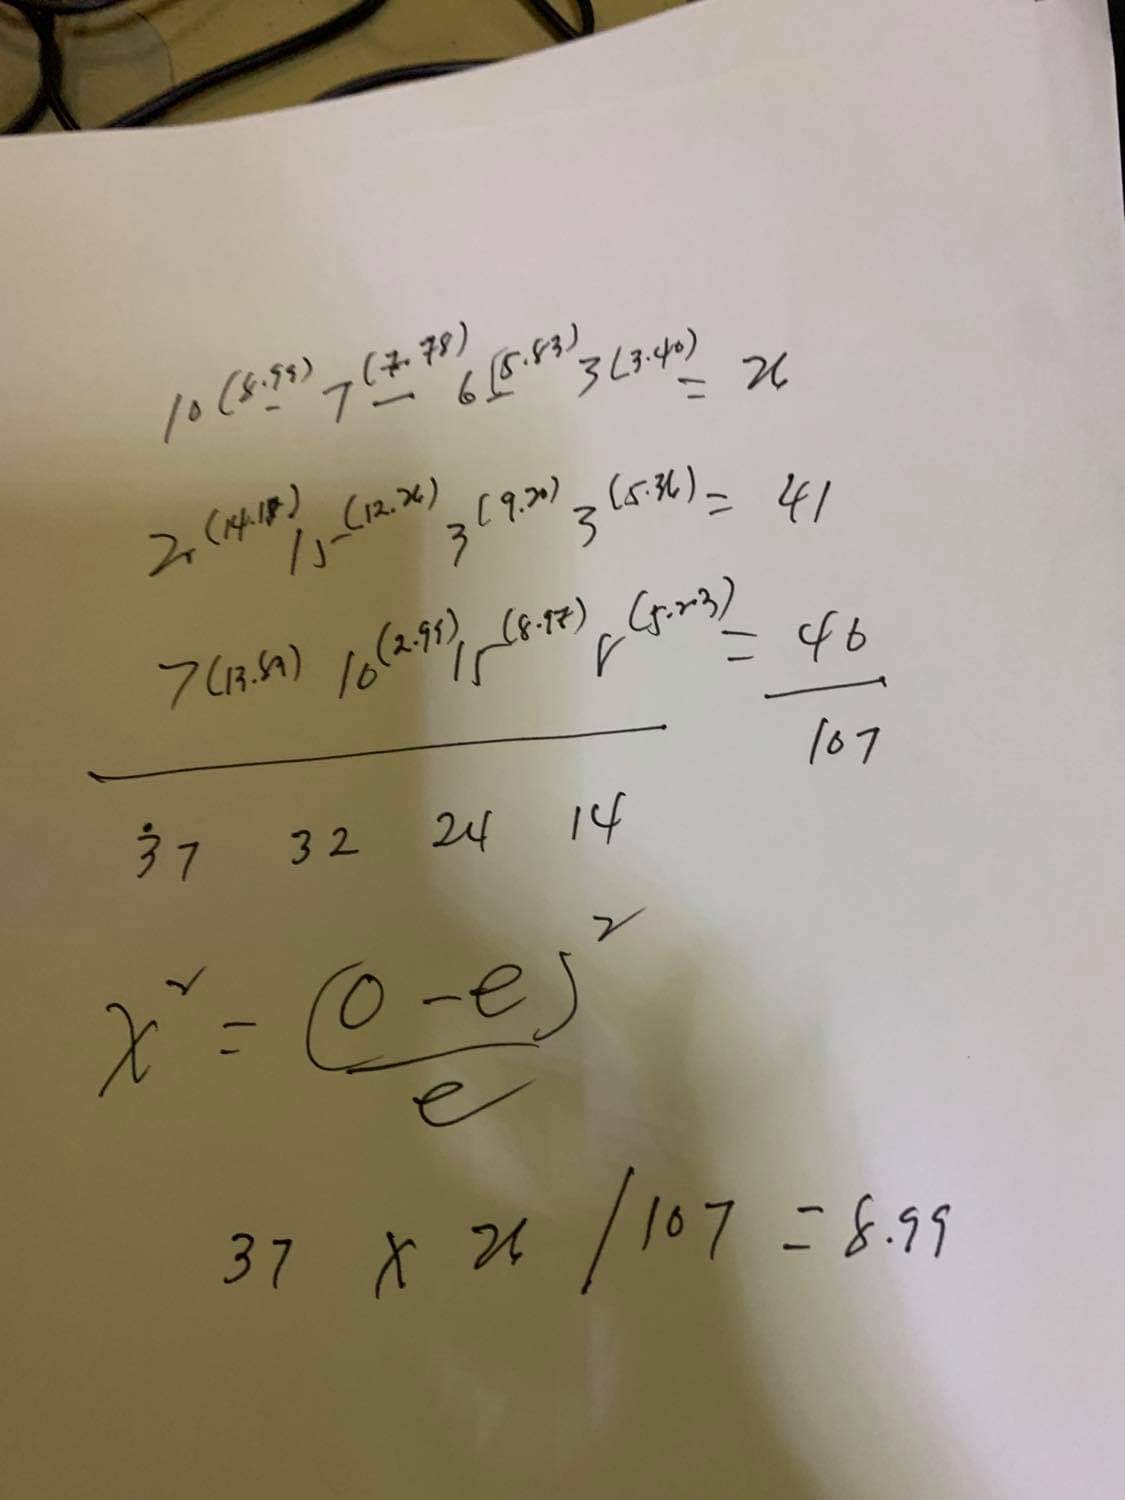 10 (8.99) 7 (7.78) 6 (5.83) 3 (3.40) = 26
20 (14.18) 15 (12.26) 3 (9.20) 3 (5.36) = 41
7 (13.89) 10 (2.99) 15 (8.97) 8 (5.23) = 40
107
37 32 24 14
χ² = (o - e)² / e
37 x 26 / 107 = 8.99